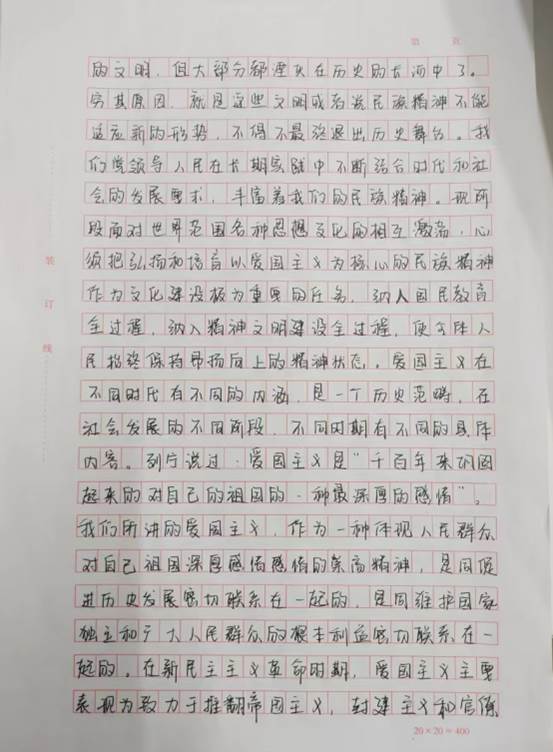 第 页
的文明，但大部分都湮灭在历史的长河中了。
究其原因，就是这些文明或者说民族精神不能
适应新的形势，不得不最终退出历史舞台。我
们党领导人民在长期实践中不断结合时代和社
会的发展要求，丰富着我们的民族精神。现阶
段面对世界范围各种思想文化的相互激荡，必
须把弘扬和培育以爱国主义为核心的民族精神
作为文化建设极为重要的任务，纳入国民教育
全过程，纳入精神文明建设全过程，使全体人
民始终保持昂扬向上的精神状态。爱国主义在
不同时代有不同的内涵，是一个历史范畴，在
社会发展的不同阶段，不同时期有不同的具体
内容。列宁说过：爱国主义是“千百年来巩固
起来的对自己的祖国的一种最深厚的感情”。
我们所讲的爱国主义，作为一种体现人民群众
对自己祖国深厚感情感情的崇高精神，是同促
进历史发展密切联系在一起的，是同维护国家
独立和广大人民群众的根本利益密切联系在一
起的。在新民主主义革命时期，爱国主义主要
表现为致力于推翻帝国主义，封建主义和官僚
装
订
线
20×20=400